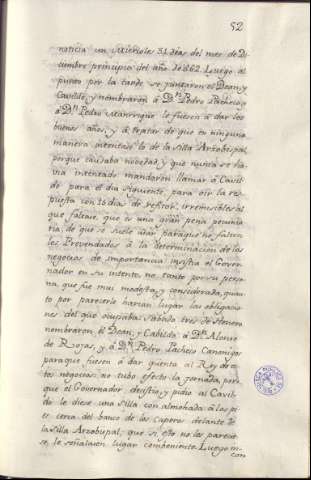 52
noticia un Miercoles 31 dias del mes de Di-
ciembre principio del año de 662. Luego al
punto por la tarde se juntaron el Dean, y
Cavildo, y nombraron à Dn. Pedro Pacheco, y
à Dn. Pedro Manrrique le fuesen à dar los
buenos años, y à tratar de que en ninguna
manera intentase lo de la silla Arzobispal,
porque causaba novedad, y que nunca se ha-
via intentado mandaron llamar à Cavil-
do para el dia siguiente, para oir la res-
puesta con 16 dias de rector, irremisibles al
que faltase, que es una gran pena pecunia-
ria, de que se suele usar paraque no falten
los Prevendados à la determinacion de los
negocios de importancia: insistia el Gover-
nador en su intento, no tanto por su perso-
na, que fue mui modesta, y considerada, quan-
to por parecerle hacian lugar las obligacio-
nes del que ocupaba: sabado tres de Henero
nombraron, el Dean, y Cabildo à Dn. Alonso
de Rojas, y à Dn. Pedro Pacheco Canonigos
paraque fuesen à dar quenta al Rey de es-
tos negocios: no tubo efecto la jornada, por-
que el Governador desistio, y pidio al Cavil-
do le diese una silla con almohada à los pi-
es cerca del banco de los caperos delante de
la silla Arzobispal; que si esto no les parecie-
se, le señalasen lugar combeniente. Luego in-
con